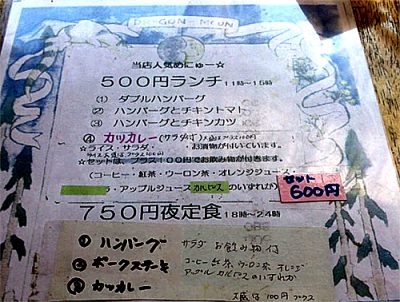 DRAGON MOON
当店人気めにゅー☆
500円ランチ 11時～15時
⑴ ダブルハンバーグ
⑵ ハンバーグとチキントマト
⑶ ハンバーグとチキンカツ
④ カツカレー(サラダ付)大盛はプラス100円
☆ライス・サラダ・お漬物が付いています。
ライス大盛は
☆セットは、プラス100円でお飲み物が付きます。
(コーヒー・紅茶・ウーロン茶・オレンジジュース・
・アップルジュース カルピス のいずれか)
セット
600円
750円夜定食 18時～24時
① ハンバーグ サラダ お飲み物付
② ポークステーキ コーヒー 紅茶 ウーロン茶 オレンジ
アップル カルピスのいずれか
③ カツカレー
大盛は100円プラス